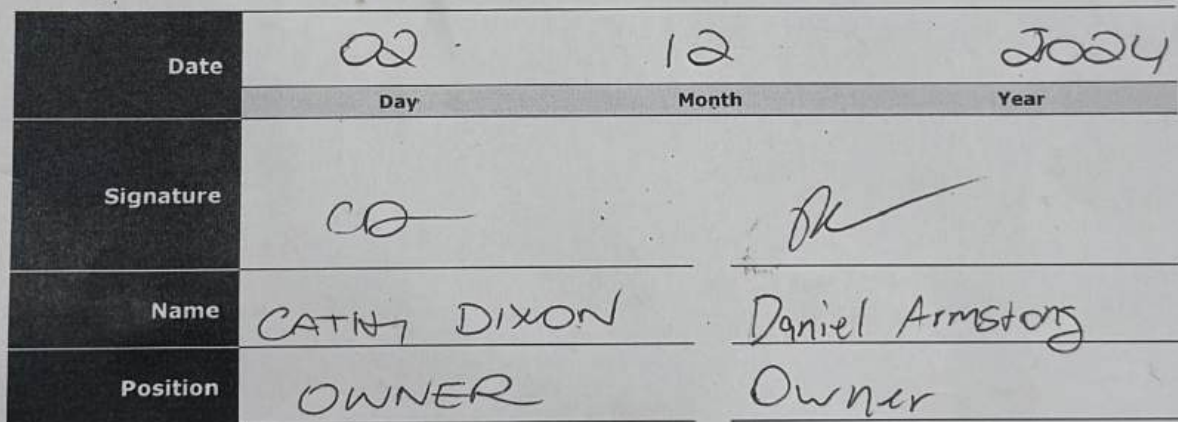 Date 02 12 2024
Day Month Year
Signature
Name CATHY DIXON Daniel Armstong
Position OWNER Owner